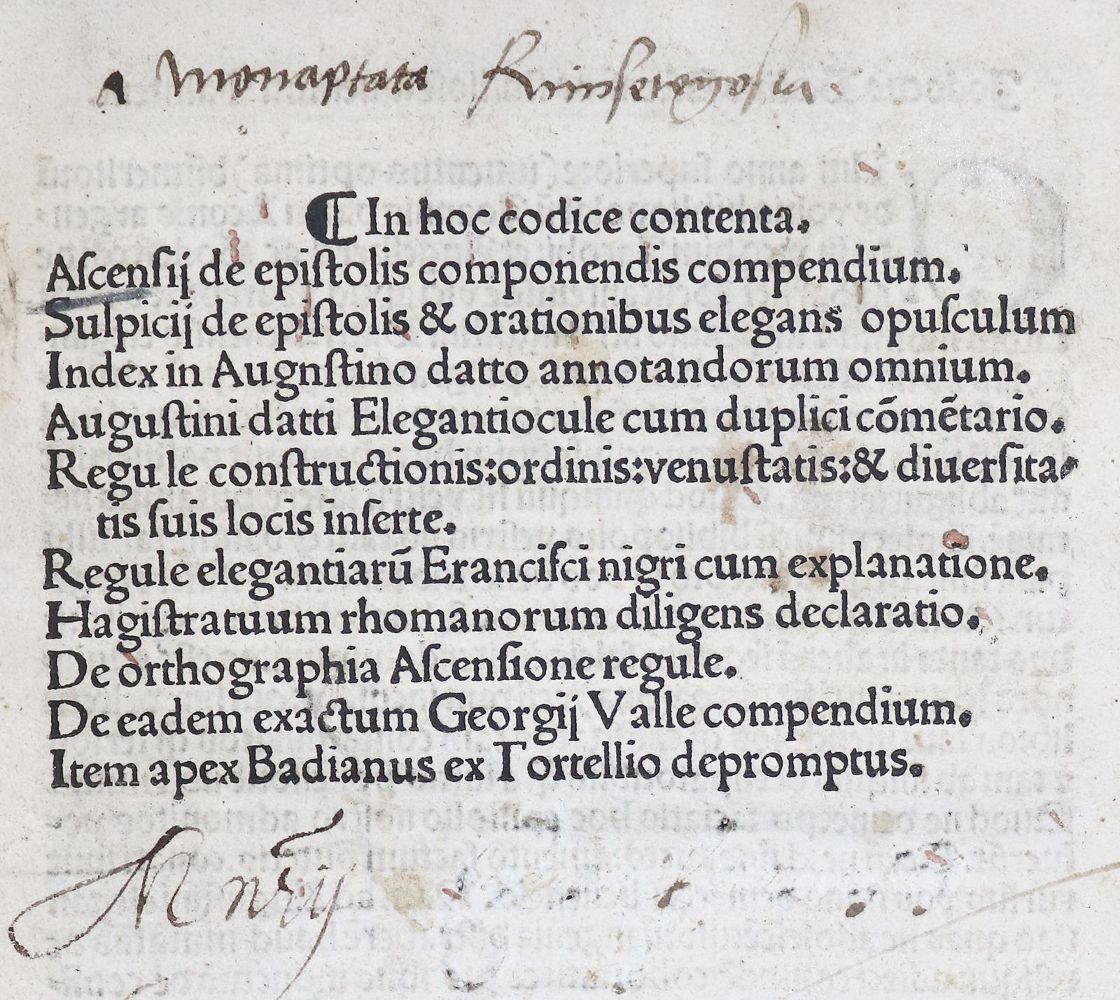 ¶ In hoc codice contenta.
Aſcenſij de epiſtolis componendis compendium.
Sulpicij de epiſtolis & orationibus elegans opuſculum
Index in Augnſtino datto annotandorum omnium.
Auguſtini datti Elegantiocule cum duplici cõmẽtario.
Regu le conſtructionis:ordinis:venuſtatis:& diuerſita-
tis ſuis locis inſerte.
Regule elegantiarũ Eranciſci nigri cum explanatione.
Hagiſtratuum rhomanorum diligens declaratio.
De orthographia Aſcenſione regule.
De eadem exactum Georgij Valle compendium.
Item apex Badianus ex Tortellio depromptus.